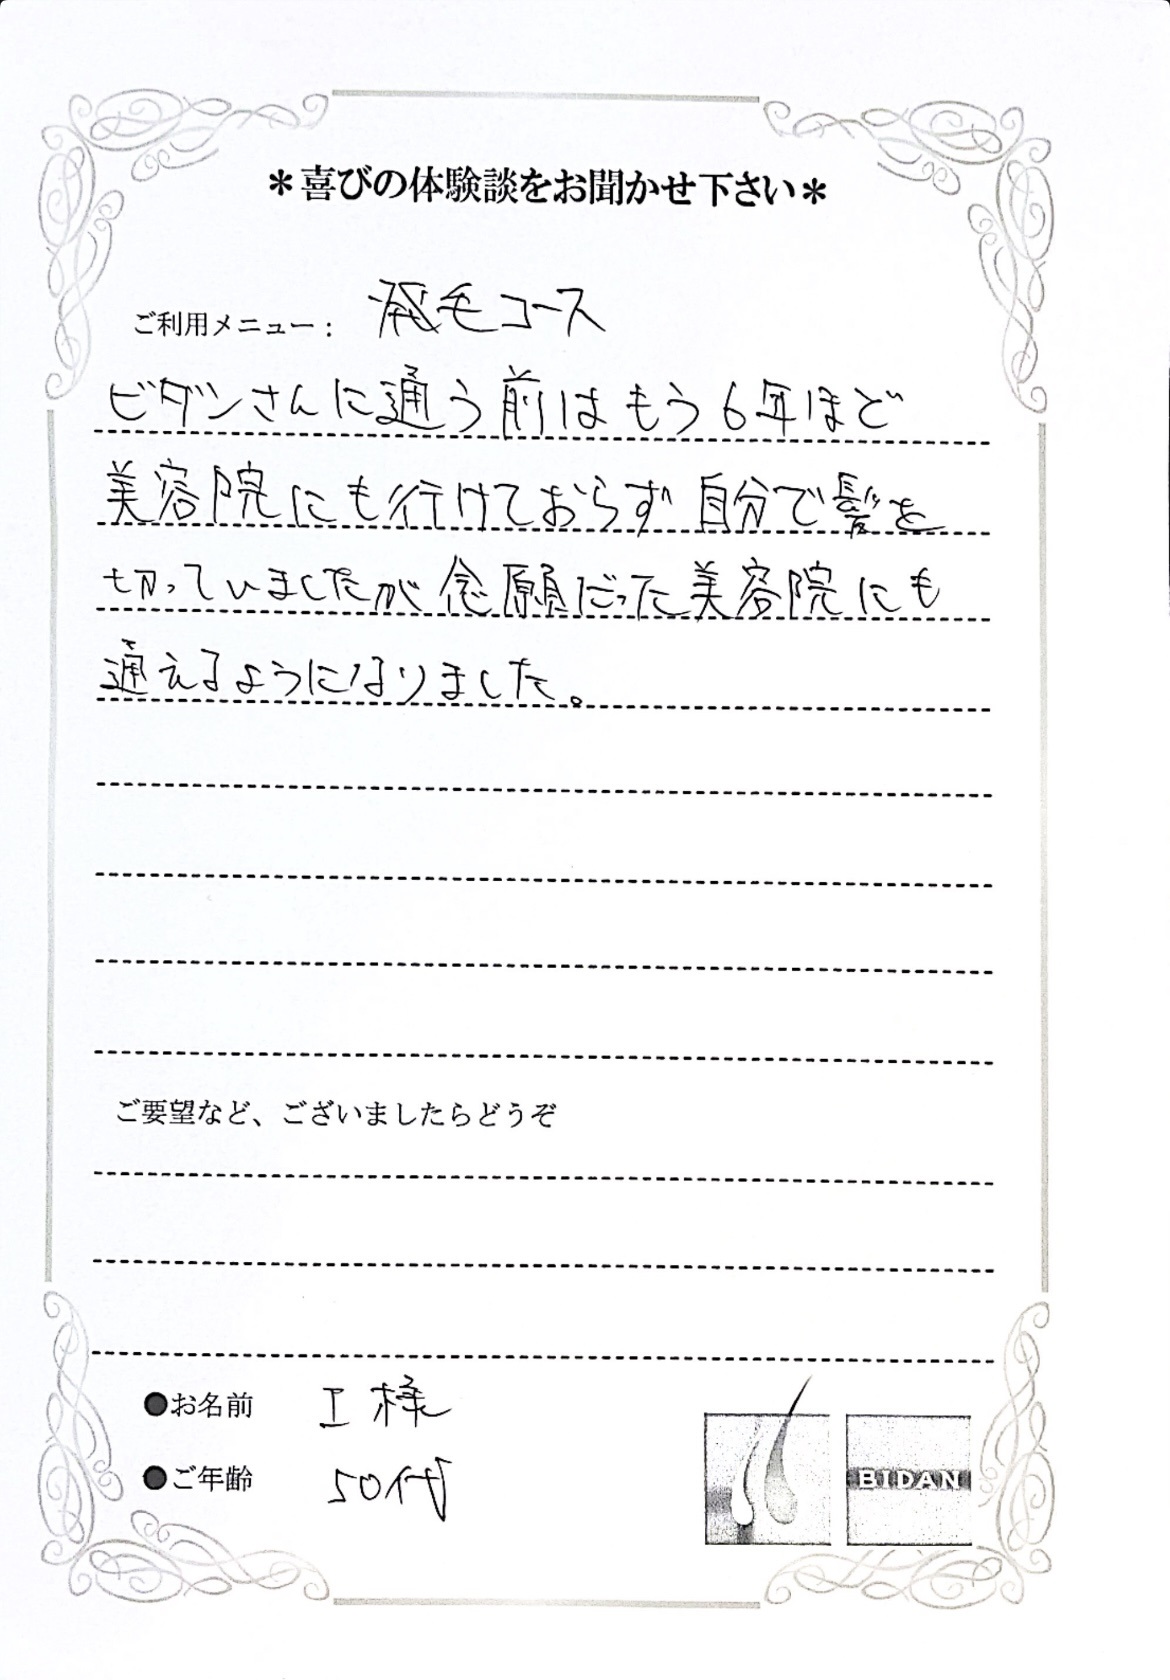 ＊喜びの体験談をお聞かせ下さい＊
ご利用メニュー： 発毛コース
ビダンさんに通う前はもう6年ほど
美容院にも行けておらず自分で髪を
切っていましたが念願だった美容院にも
通えるようになりました。
ご要望など、ございましたらどうぞ
●お名前 I様
●ご年齢 50代
BIDAN